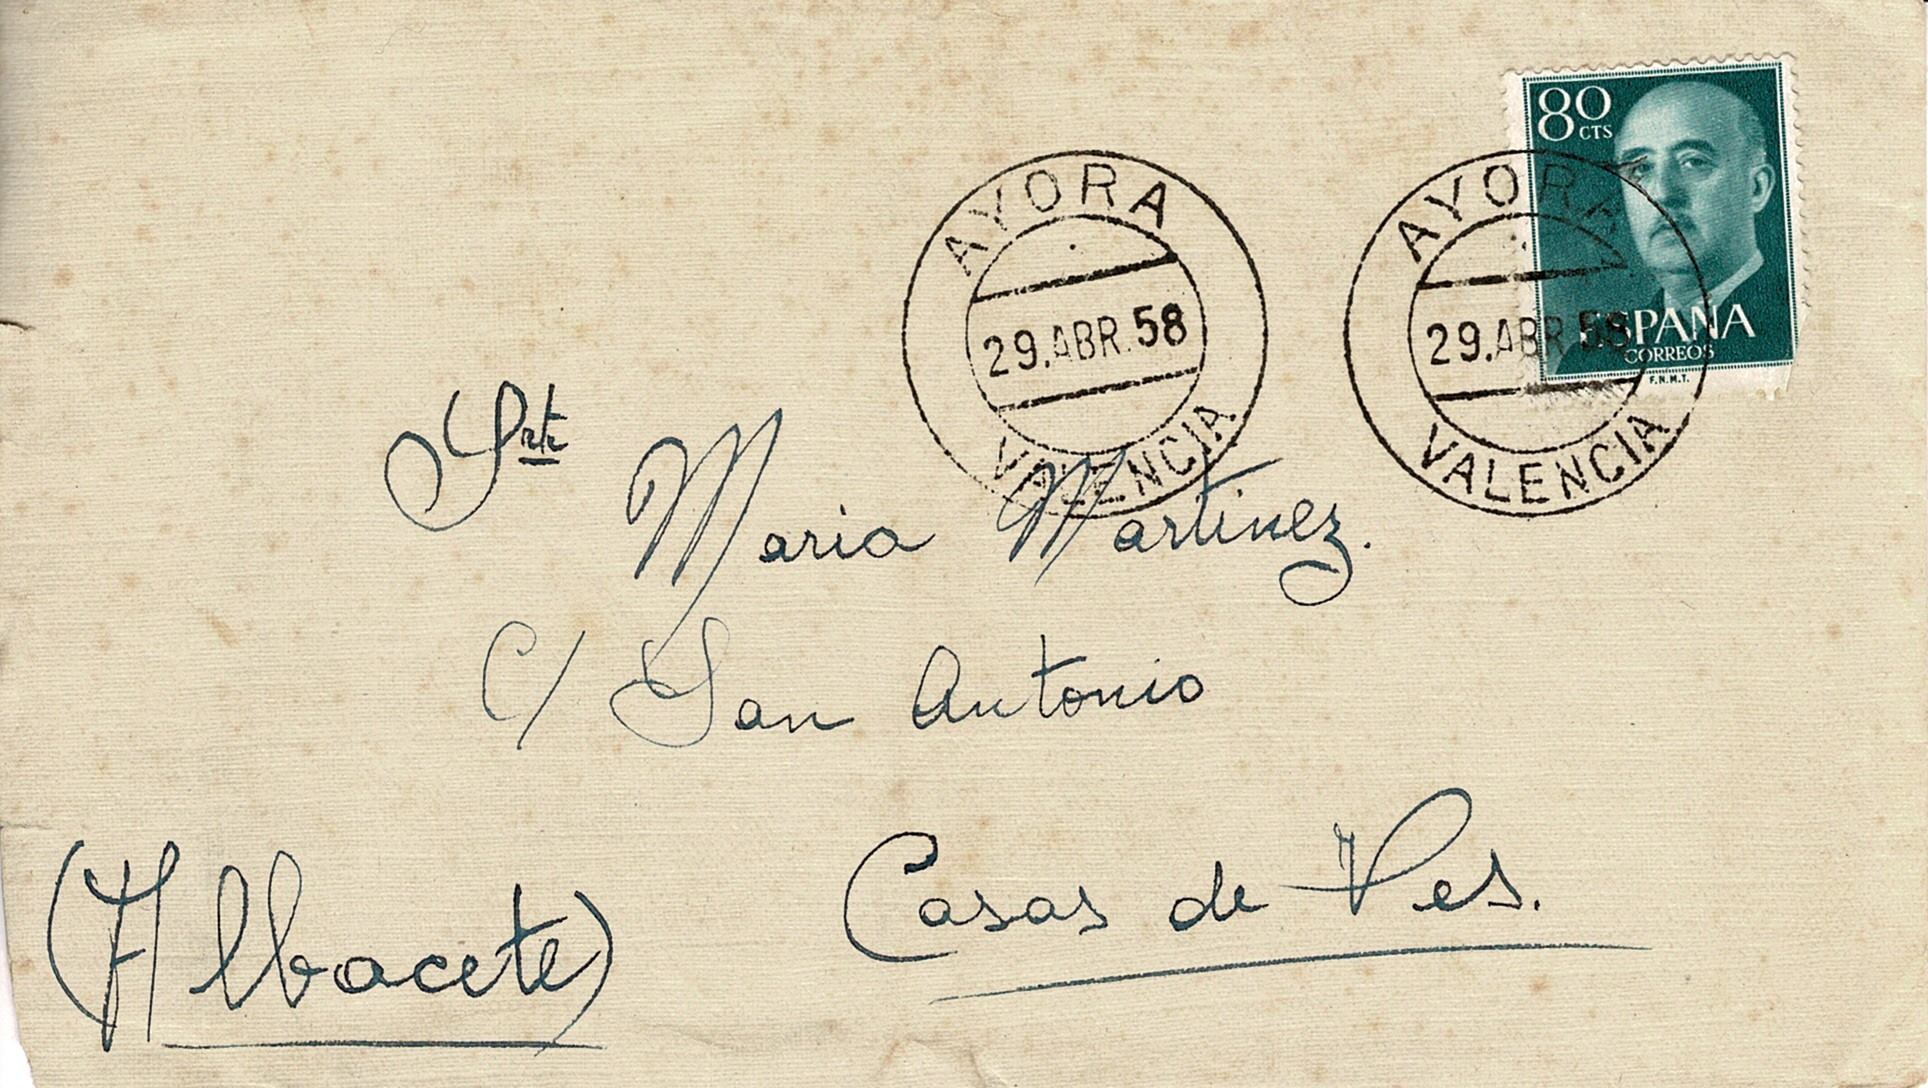 80 CTS
ESPAÑA
CORREOS
F.N.M.T.
AYORA
29.ABR.58
VALENCIA
AYORA
29.ABR.58
VALENCIA
Srta
Maria Martinez.
C/ San Antonio
Casas de Ves.
(Albacete)